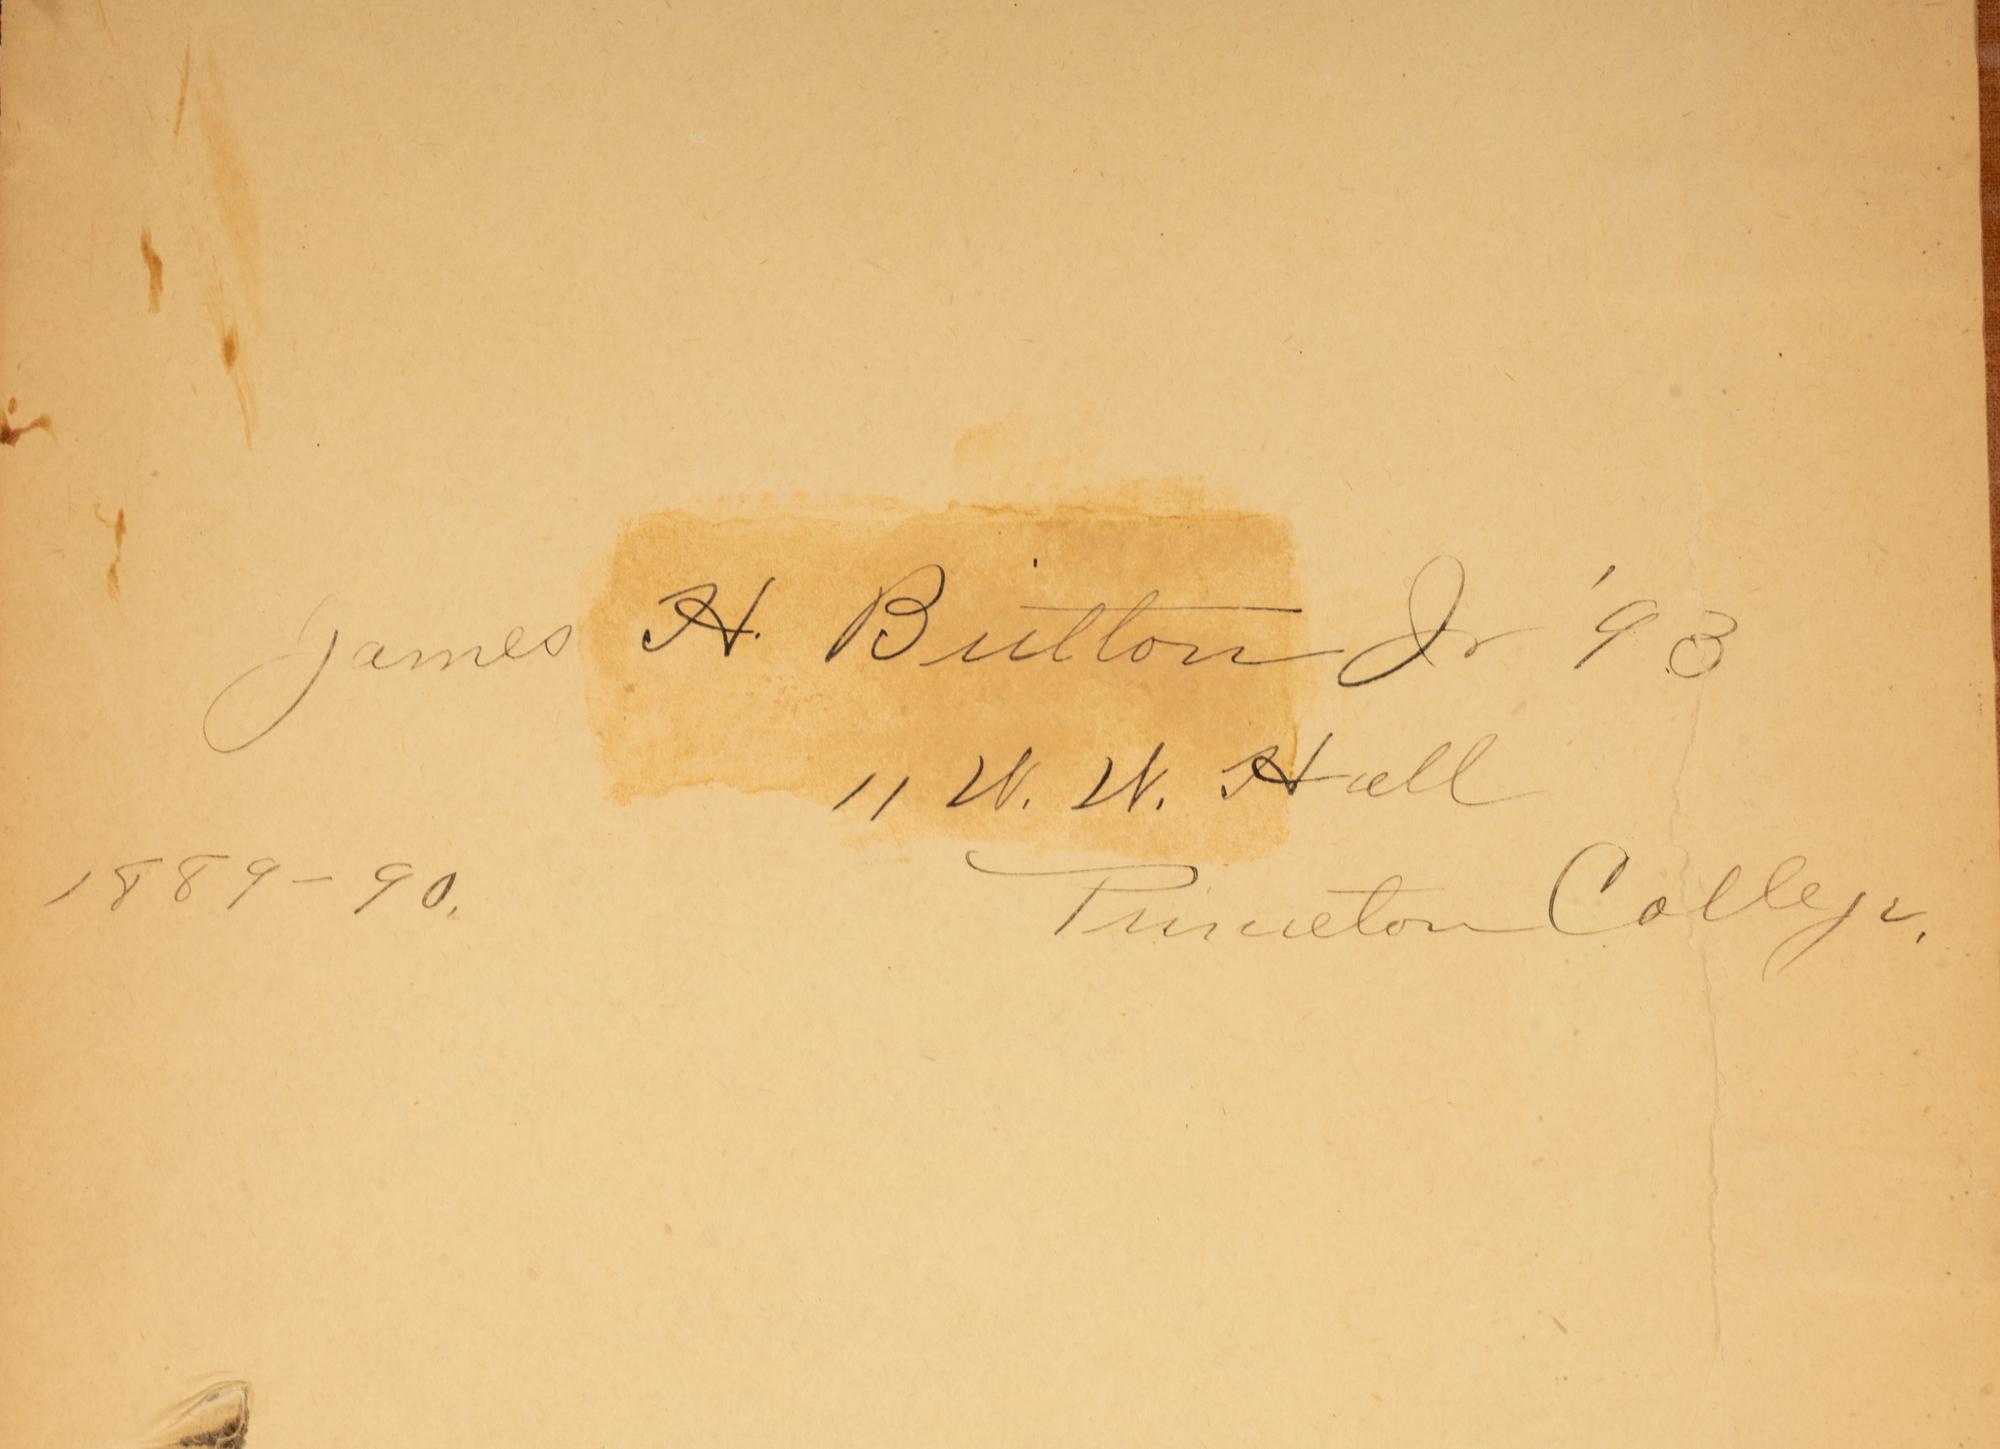 James H. Britton Jr '93
11 W. W. Hall
1889-90.
Princeton College.